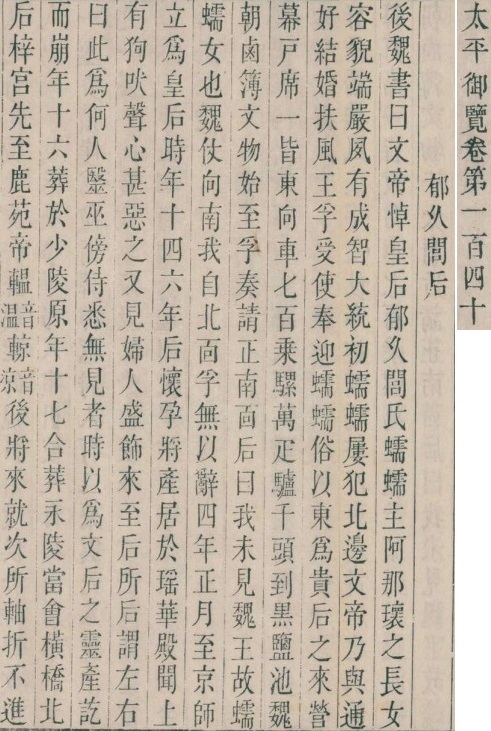 太平御覽卷第一百四十
郁久閭后
後魏書曰文帝悼皇后郁久閭氏蠕蠕主阿那瓌之長女
容貌端嚴夙有成智大統初蠕蠕屢犯北邊文帝乃與通
好結婚扶風王孚受使奉迎蠕蠕俗以東爲貴后之來營
幕戸席一皆東向車七百乘騾萬疋驢千頭到黑鹽池魏
朝鹵簿文物始至孚奏請正南面后曰我未見魏王故蠕
蠕女也魏仗向南我自北面孚無以辭四年正月至京師
立爲皇后時年十四六年后懷孕將產居於瑶華殿聞上
有狗吠聲心甚惡之又見婦人盛飾來至后所后謂左右
曰此爲何人毉巫傍侍悉無見者時以爲文后之靈產訖
而崩年十六葬於少陵原年十七合葬永陵當會橫橋北
后梓宮先至鹿苑帝轀音溫輬音凉後將來就次所軸折不進